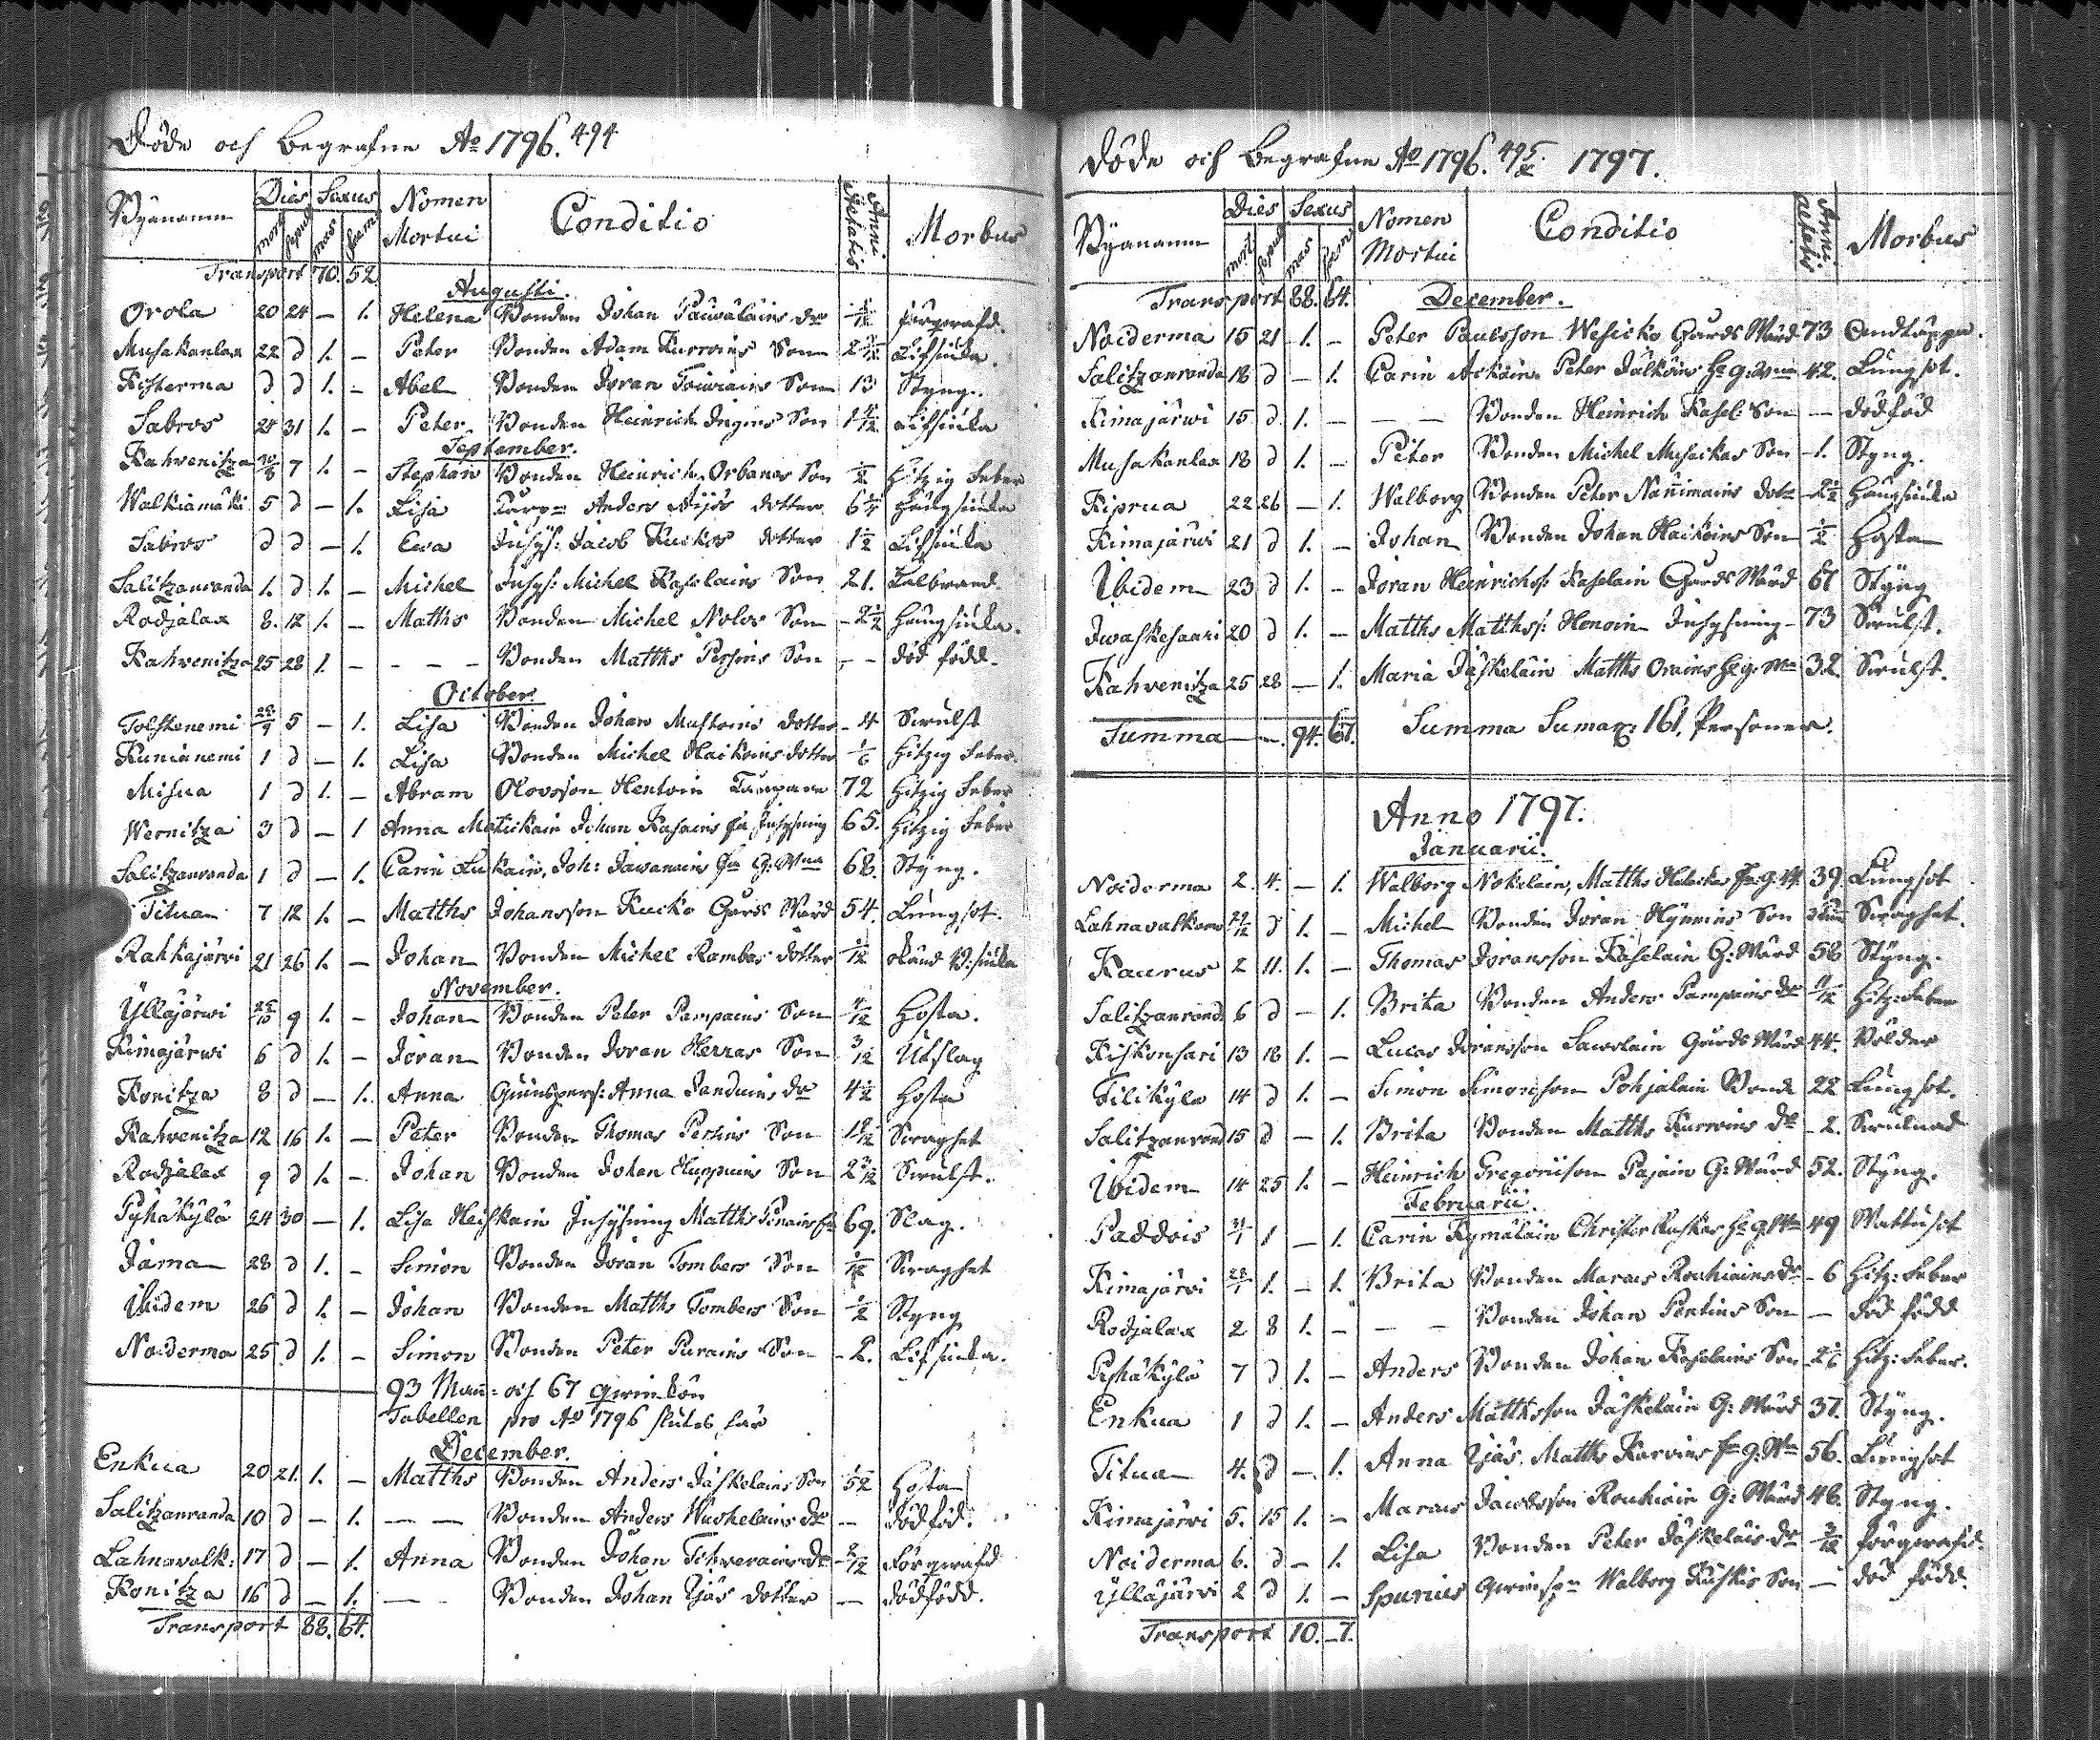 Döde och Begrafne Ao 1796. 494
Byanamn Dies Sexus Nomen Mortui Conditio Anni Aetatis Morbus
mort sepult mas foem
Transport 70. 52
Augusti.
Orola 20 24 — 1. Helena Bonden Johan Pauvalains dr 1/12 förqvafd.
Musakanlax 22 d 1. — Peter Bonden Adam Kurvins Son Lifsiuka.
Kisterma d d 1. — Abel Bonden Joran Son 13 Styng.
Sabros 24 31 1. — Peter Bonden Heinrich Ingers Son Lifsiuka
September.
Kahvenitza 30/8 7 1. — Stephan Bonden Heinrich Orbanas Son 1/2 Hitzig Feber
Walkiamäki 5 d — 1. Lisa Anders Äijös dotter 6 Haugsiuka
Sabros d d — 1. Ewa Inhys: Jacob Kuckos dotter 1 1/2 Lifsiuka
Salitzanranda 1. d 1. — Michel Inhys: Michel Kaselains Son 21. Kalbrand.
Rodjalax 8. 12 1. — Matths Bonden Michel Nolos Son — 2 1/2 Haugsiuka.
Kahvenitza 25 28 1. — — — — Bonden Matths Persins Son — — död född.
October.
Tolskenemi 28/9 5 — 1. Lisa Bonden Johan Mustoins dotter — 4 Swulst
Kunianemi 1 d — 1. Lisa Bonden Michel Haikoins dotter 1/6 Hitzig Feber.
Misua 1 d 1. — Abram Olovsson Hentoin 72 Hitzig Feber
Wernitza 3 d — 1 Anna Matickain Johan Kasains Inhysning 65. Hitzig Feber
Salitzanranda 1 d — 1. Carin Lukain, Joh: Jawanains 68. Styng.
Titua 7 12 1. — Matths Johansson Kucko Gårds Wärd 54. Lungsot.
Rahkajärvi 21 26 1. — Johan Bonden Michel Rambas dotter 1/12
November.
Ylläjärwi 25/10 9 1. — Johan Bonden Peter Pampains Son 4/12 Hosta.
Kimajärwi 6 d 1. — Joran Bonden Joran Herras Son 3/12 Utslag
Konitza 8 d — 1. Anna Anna Janduins dr 4 1/2 Hosta
Kahvenitza 12 16 1. — Peter Bonden Thomas Persins Son Swaghet
Rodjalax 9 d 1. — Johan Bonden Johan Huppuins Son Swulst.
Pyhäkylä 24 30 — 1. Lisa Heiskain Inhysning Matths 69. Slag.
Jäma 28 d 1. — Simon Bonden Joran Tombers Son Swaghet
Ibidem 26 d 1. — Johan Bonden Matths Tombers Son 1/2 Styng
Noiderma 25 d 1. — Simon Bonden Peter Purains Son — 2. Lifsiuka.
93 Man- och 67 qwinkön
Tabellen pro Ao 1796 slutes här
December.
Enkua 20 21. 1. — Matths Bonden Anders Jäskelains Son 1/52 Hosta
Salitzanranda 10 d — 1. — — Bonden Anders dr — dödföd.
Lahnavalk: 17 d — 1. Anna Bonden Johan Tihverains dr förqwafd
Konitza 16 d — 1. — Bonden Johan Äjäs dotter — dödfödd.
Transport 88. 64.
Döde och Begrafne Ao 1796. 495. 1797.
Byanamn Dies Sexus Nomen Mortui Conditio Anni aetatis Morbus
mort sepult mas foem
Transport 88. 64. December.
Noiderma 15 21 1. — Peter Paulsson Wesicko Gårds Wärd 73 Andtäppa.
Salitzanranda 18 d — 1. Carin Ackain Peter Jälköins 42. Lungsot.
Kimajärwi 15 d. 1. — — — Bonden Heinrich Kasel: Son — dödföd
Musakanlax 18 d 1. — Peter Bonden Michel Musickas Son — 1. Styng.
Kiprua 22 26 — 1. Walborg Bonden Peter Nannimains dotr — 2 1/2 Haugsiuka
Kimajärwi 21 d 1. — Johan Bonden Johan Haikoins Son 1/2 Hosta
Ibidem 23 d 1. — Joran Heinrichss: Kaselain Gårds Wärd 67 Styng
Jwaskesaari 20 d 1. — Matths Matthss: Henoin Inhysning — 73 Swulst.
Kahvenitza 25 28 — 1. Maria Jäskelain Matths Orains 32. Swulst.
Summa — — 94. 67. Summa Sumar: 161 Personer.
Anno 1797.
Januarii.
Noiderma 2. 4. — 1. Walborg Nokelain, Matths 39 Lungsot
Lahnavalkama 29/12 d 1. — Michel Bonden Joran Hynnins Son Swaghet.
Kaurus 2 11. 1. — Thomas Joransson Kaselain G: Wärd 58 Styng.
Salitzanrand. 6 d — 1. Brita Bonden Anders Pampains dr Hitz: Feber
Kiskonsari 13 18 1. — Lucas Joransson Sawolain Gårds Wärd 44. Bölder
Tilikylä 14 d 1. — Simon Simonsson Pohjalain Bonde 22 Lungsot.
Salitzanrand 15 d — 1. Brita Bonden Matths Kurvins dr — 2. Swulnad
Ibidem 14 25 1. — Heinrich Gregoriison Pajain G: Wärd 52. Styng.
Februarii.
Paddois 31/1 1 — 1. Carin Kymäläin Christer Ruskas 49 Wattusot
Kimajärvi 28/1 1. — 1. Brita Bonden Marcus Rouhiains dr — 6 Hitz: Feber
Rodjalax 2 8 1. — — — Bonden Johan Pentins Son — död född
Pyhäkylä 7 d 1. — Anders Bonden Johan Kaselains Son Hitz: Feber.
Enkua 1 d 1. — Anders Matthsson Jäskelain G: Wärd 37. Styng.
Titua 4. d — 1. Anna Äjäs, Matths Karvins 56. Lungsot
Kimajärvi 5. 15 1. — Marcus Jacobsson Rouhiain G: Wärd 46. Styng.
Noiderma 6. d — 1. Lisa Bonden Peter Jäskeläis dr förqwafd.
Ylläjärvi 2 d 1. — Spurius Walborg Kuskis Son — död född.
Transport 10. — 7.